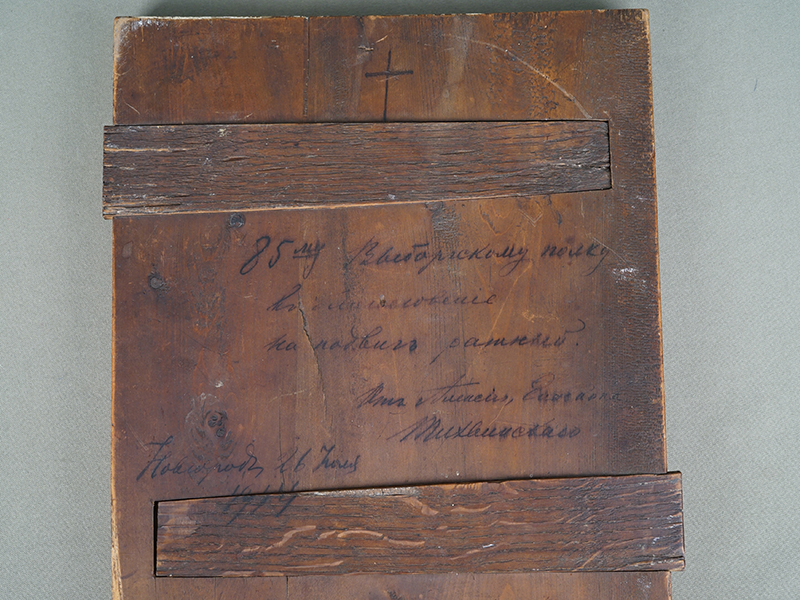 85му Выборгскому полку
въ благословеніе
на подвигъ ратный.
Отъ Алексія, Епископа
Тихвинскаго
Новгородъ, 26 Іюля
1914